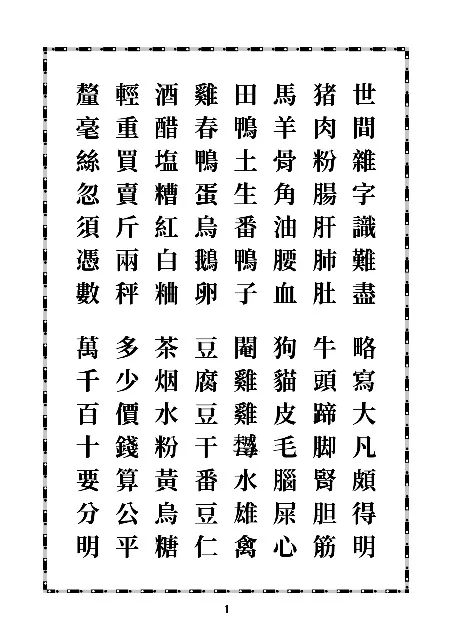 世間雜字識難盡 略寫大凡頗得明
猪肉粉腸肝肺肚 牛頭蹄脚腎胆筋
馬羊骨角油腰血 狗貓皮毛腦屎心
田鴨土生番鴨子 閹雞雞水雄禽
雞春鴨蛋烏鵝卵 豆腐豆干番豆仁
酒醋塩糟紅白粬 茶烟水粉黃烏糖
輕重買賣斤兩秤 多少價錢算公平
釐毫絲忽須憑數 萬千百十要分明
1